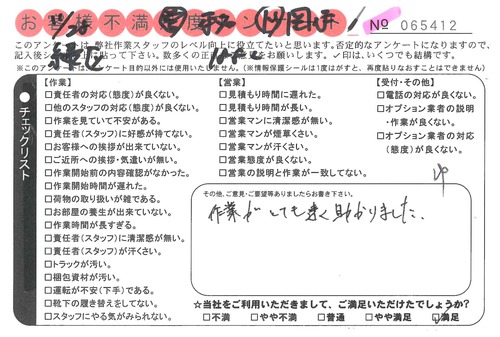 お客様不満度アンケート
No 065412
このアンケートは、弊社作業スタッフのレベル向上に役立てたいと思います。否定的なアンケートになりますので、
※このアンケートは、アンケート目的以外には使用いたしません。(※情報保護シールは1度はがすと、再度貼りなおすことはできません)
チェックリスト
【作業】
□責任者の対応(態度)が良くない。
□他のスタッフの対応(態度)が良くない。
□作業を見ていて不安がある。
□責任者(スタッフ)に好感が持てない。
□お客様への挨拶が出来ていない。
□ご近所への挨拶・気遣いが無い。
□作業開始前の内容確認がなかった。
□作業開始時間が遅れた。
□荷物の取り扱いが雑である。
□お部屋の養生が出来ていない。
□作業時間が長すぎる。
□責任者(スタッフ)に清潔感が無い。
□責任者(スタッフ)が汗くさい。
□トラックが汚い。
□梱包資材が汚い。
□運転が不安(下手)である。
□靴下の履き替えをしてない。
□スタッフにやる気がみられない。
【営業】
□見積もり時間に遅れた。
□見積もり時間が長い。
□営業マンに清潔感が無い。
□営業マンが煙草くさい。
□営業マンが汗くさい。
□営業態度が良くない。
□営業の説明と作業が一致してない。
【受付・その他】
□電話の対応が良くない。
□オプション業者の説明
・作業が良くない。
□オプション業者の対応
(態度)が良くない。
その他、ご意見・ご要望等ありましたらお書き下さい。
作業がとても速く助かりました。
☆当社をご利用いただきまして、ご満足いただけたでしょうか?
□不満 □やや不満 □普通 □やや満足 ☑満足